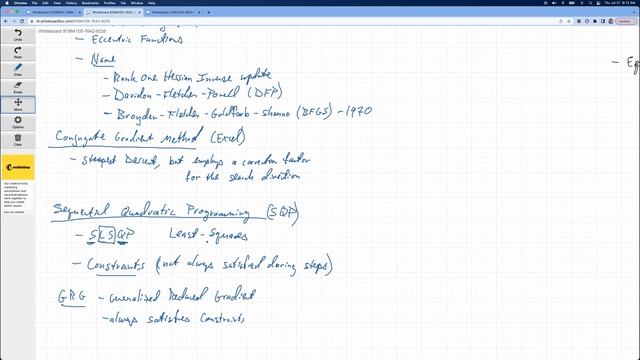 Chrome File Edit View History Bookmarks Profiles Tab Window Help
Thu Jul 21 9:13 AM
Whiteboard 91984105-7642-9238
Undo
Redo
Draw
Erase
Move
Options
Clear
- Eccentric Functions
- Name
- Rank One Hessian Inverse update
- Davidon-Fletcher-Powell (DFP)
- Broyden-Fletcher-Goldfarb-Shanno (BFGS) - 1970
Conjugate Gradient Method (Excel)
- Steepest Descent, but employs a correction factor
for the search direction
Sequential Quadratic Programming (SQP)
- SLSQP Least-Squares
- Constraints (not always satisfied during steps)
GRG - Generalized Reduced Gradient
- always satisfies Constraints